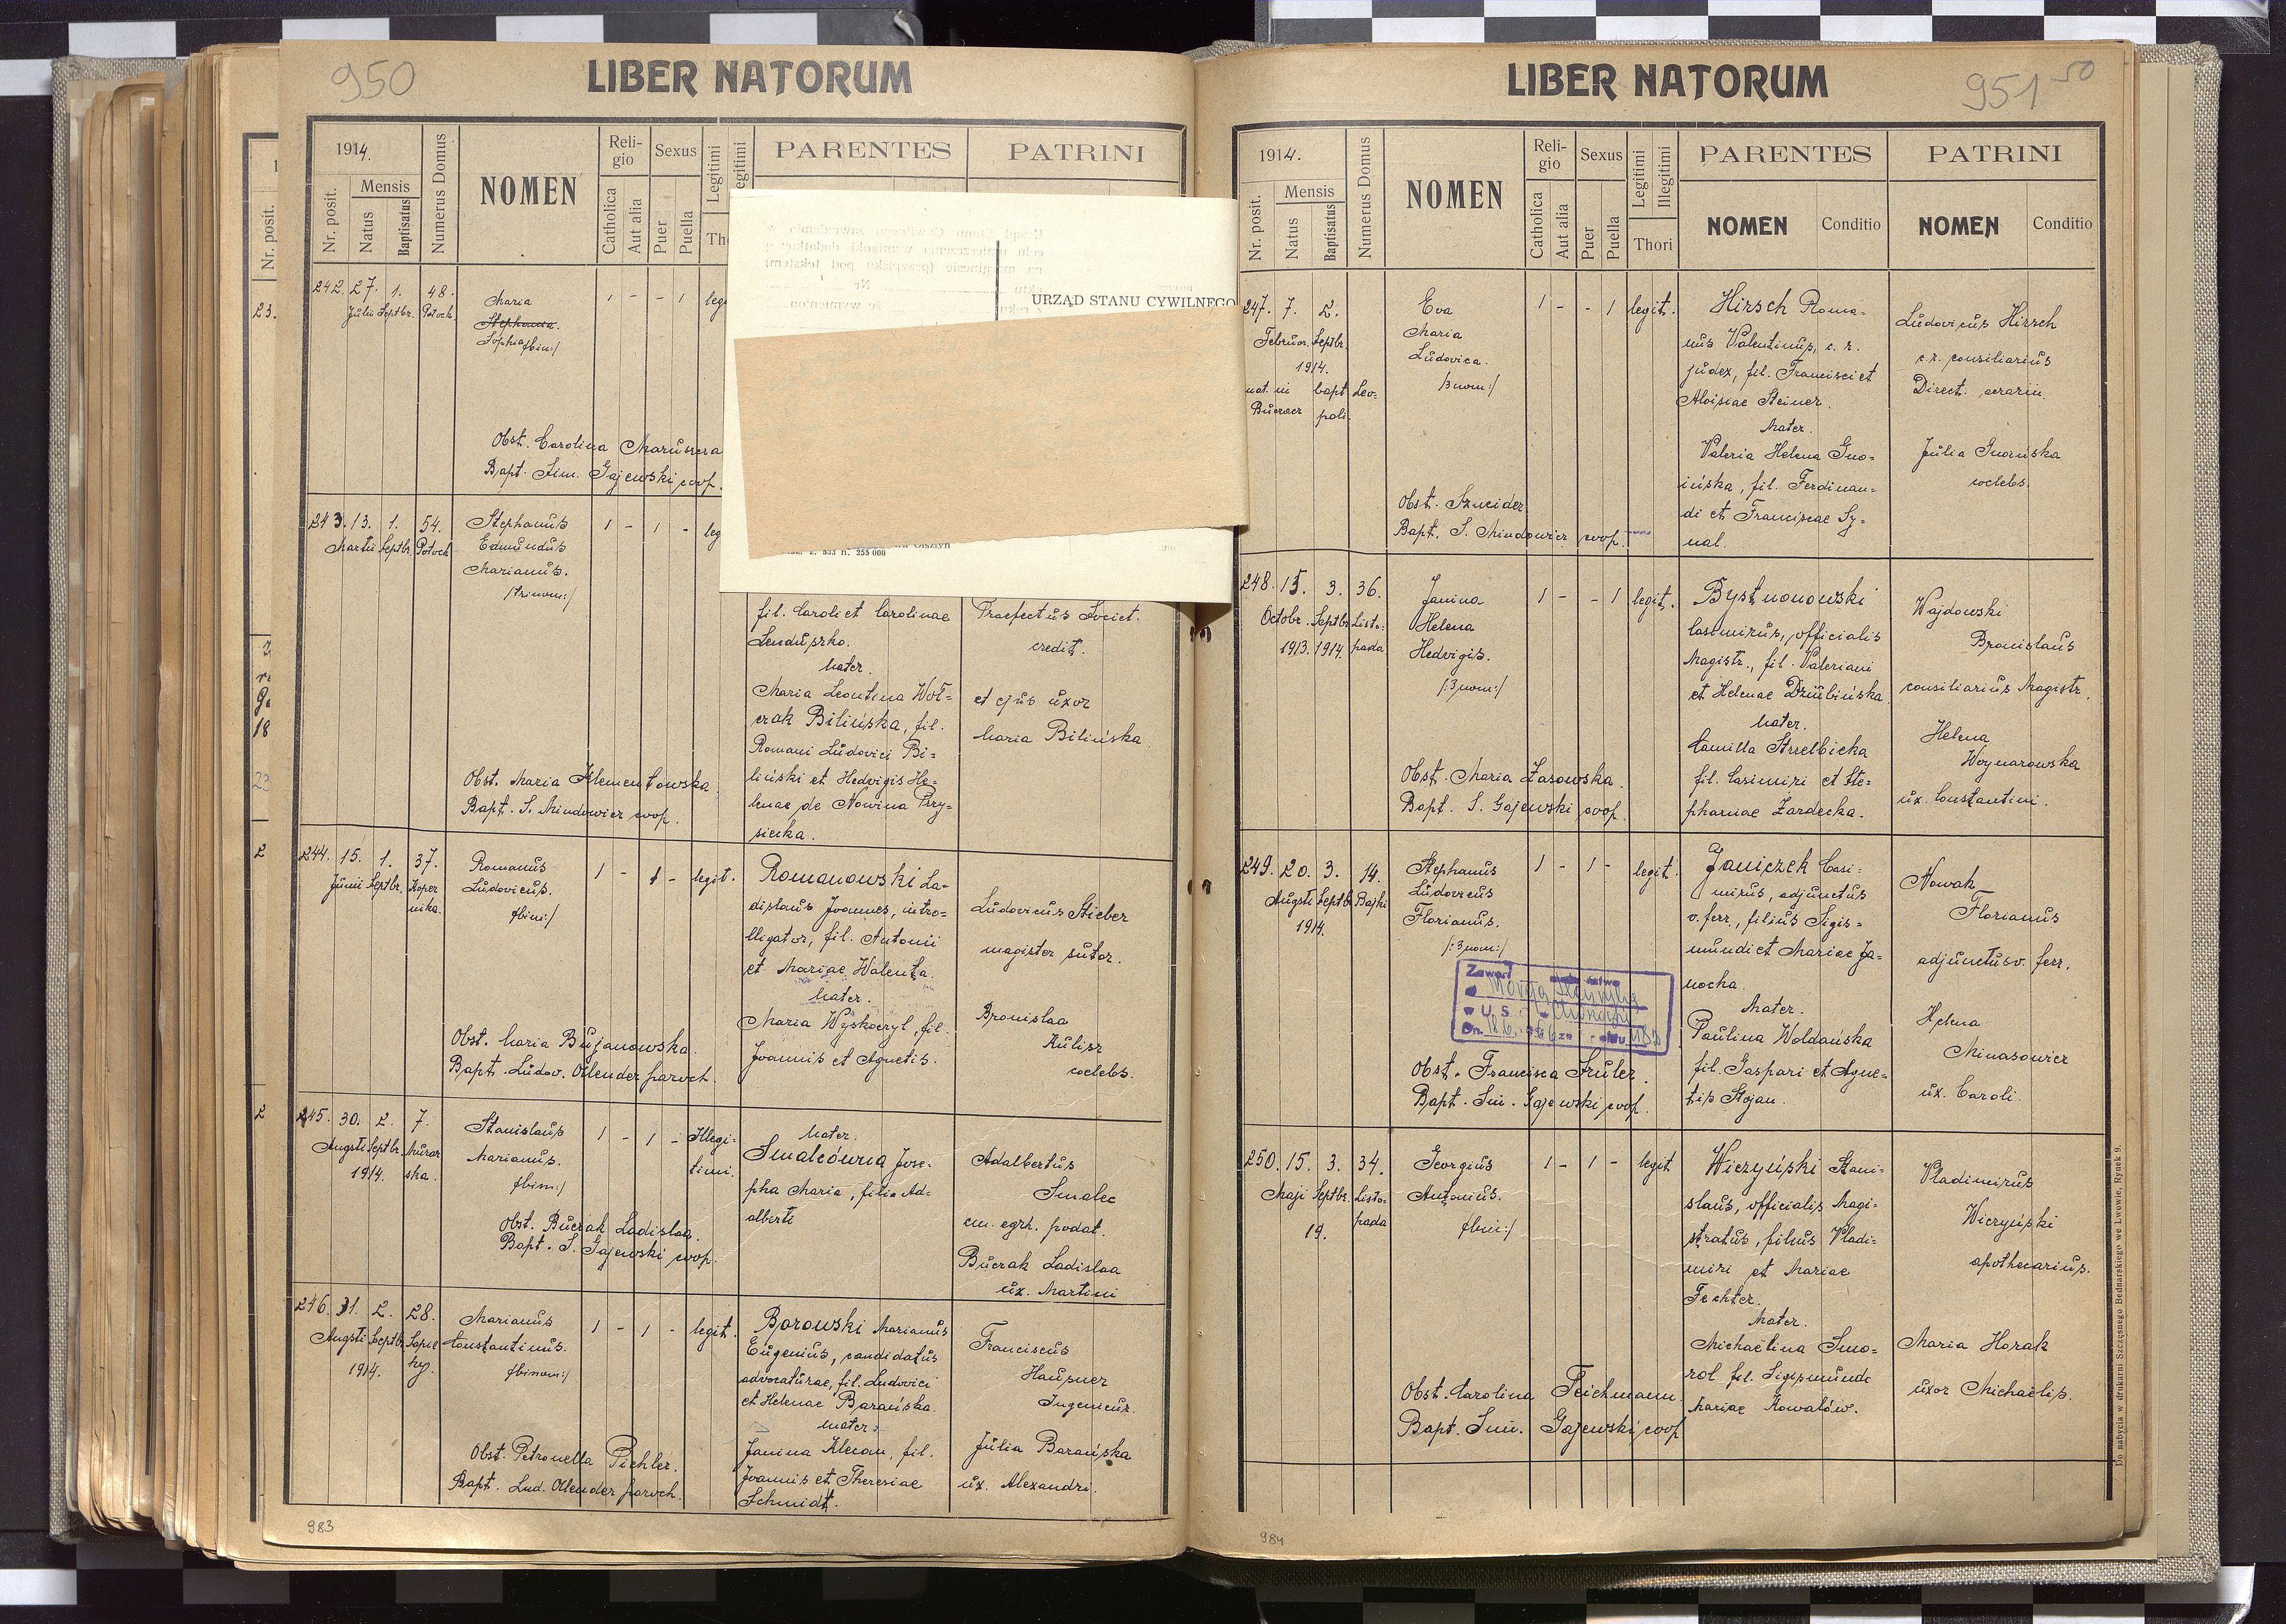 950
LIBER NATORUM
1914.
Nr. posit.
Mensis
Natus
Baptisatus
Numerus Domus
NOMEN
Religio
Catholica
Aut alia
Sexus
Puer
Puella
Legitimi
PARENTES
PATRINI
URZĄD STANU CYWILNEGO
242. 27. 1. 48.
Julii Septbr. Potock.
Maria
Stephania.
Sophia /bin:/
1 - - 1
Obst. Carolina
Bapt. Sim. Gajewski coop.
243. 13. 1. 54.
Martii Septbr. Potock
Stephanus
Edmundus
Marianus.
/trinom:/
1 - 1 - leg
fil. Caroli et Carolinae
Mater.
Maria Leontina Woł=
czak Bilińska, fil.
Romani Ludovici Bi=
liński et Hedvigis He=
lenae de Nowina Przy=
siecka.
Praefectus Societ.
credit.
et ejus uxor
Maria Bilińska
Obst. Maria Klementowska.
Bapt. S. Mindowicz coop.
244. 15. 1. 37.
Junii Septbr. Koper
nika.
Romanus
Ludovicus.
/bini:/
1 - 1 - legit.
Romanowski La=
dislaus Joannes, intro=
lligator, fil. Antonii
et Mariae Walenta.
Mater.
Maria Wyskoczyl, fil.
Joannis et Agnetis.
Ludovicus Stieber
magister sutor.
Bronislaa
Kulisz
coelebs.
Obst. Maria Bujanowska
Bapt. Ludov. Ollender paroch.
245. 30. 2. 7.
Augsti Septbr. Murar
1914. ska.
Stanislaus
Marianus.
/bin:/
1 - 1 - Illegi=
timi.
Mater.
Smalcówna Jose=
pha Maria, filia Ad=
alberti
Adalbertus
Smalec
em. egzk. podat.
Buczak Ladislaa
ux. Martini
Obst. Buczak Ladislaa.
Bapt. S. Gajewski coop.
246. 31. 2. 28.
Augsti Septbr. Sapie
1914. hy.
Marianus
Constantinus.
/binom:/
1 - 1 - legit.
Borowski Marianus
Eugenius, candidatus
advocaturae, fil. Ludovici
et Helenae Barańska.
Mater:
Janina Klecan, fil.
Joannis et Theresiae
Schmidt.
Franciscus
Hausner
Ingenieur.
Julia Barańska
ux. Alexandri.
Obst. Petronella Pichler.
Bapt. Lud. Ollender paroch.
983
951
50
LIBER NATORUM
1914.
Nr. posit.
Mensis
Natus
Baptisatus
Numerus Domus
NOMEN
Religio
Catholica
Aut alia
Sexus
Puer
Puella
Legitimi
Illegitimi
Thori
PARENTES
NOMEN
Conditio
PATRINI
NOMEN
Conditio
247. 7. 2.
Februar. Septbr.
1914.
nat. in bapt. Leo=
poli.
Eva
Maria
Ludovica.
/3 nom:/
1 - - 1 legit.
Hirsch Roma=
nus Valentinus, c. r.
judex, fil. Francisci et
Aloisiae Steiner.
Mater.
Valeria Helena Gno=
ińska, fil. Ferdinan=
di et Franciscae Sy=
nal.
Ludovicus Hirsch
c.r. consiliarius
Direct. aerarii.
Julia Gnoińska
coelebs.
Obst. Sznider
Bapt. S. Mindowicz coop.
248. 15. 3. 36.
Octobr. Septbr. Listo=
1913. 1914. pada
Janina
Helena
Hedvigis.
/:3 nom:/
1 - - 1 legit.
Bystronowski
Casimirus, officialis
Magistr., fil. Valeriani
et Helenae Dziubińska
Mater.
Camilla Strzelbicka
fil. Casimiri et Ste=
phaniae Zardecka.
Wajdowski
Bronislaus
consiliarius Magistr.
Helena
Woynarowska
ux. Constantini.
Obst. Maria Zasowska.
Bapt. S. Gajewski coop.
249. 20. 3. 14.
Augsti Septbr. Bajki
1914.
Stephanus
Ludovicus
Florianus.
/:3 nom:/
1 - 1 - legit.
Janiczek Casi=
mirus, adjunctus
v. ferr., filius Sigis=
mundi et Mariae Ja=
nocha.
Mater.
Paulina Woldańska
fil. Gaspari et Agne=
tis Stojan.
Nowak
Florianus
adjunctus v. ferr.
Helena
Minasowicz
ux. Caroli.
Obst. Francisca Szuler.
Bapt. Sim. Gajewski coop.
250. 15. 3. 34.
Maji Septbr. Listo=
19. pada
Georgius
Antonius.
/bini:/
1 - 1 - legit
Wiczyński Stani=
slaus, officialis Magi=
stratus, filius Vladi=
miri et Mariae
Fechter.
Mater.
Michaelina Smo=
rol fil. Sigismundi
Mariae Kowalów.
Vladimirus
Wiczyński
apothecarius.
Maria Horak
uxor Michaëlis.
Obst. Carolina Teichmann
Bapt. Sim. Gajewski coop
Do nabycia w drukarni Szczęsnego Bednarskiego we Lwowie, Rynek 9.
984